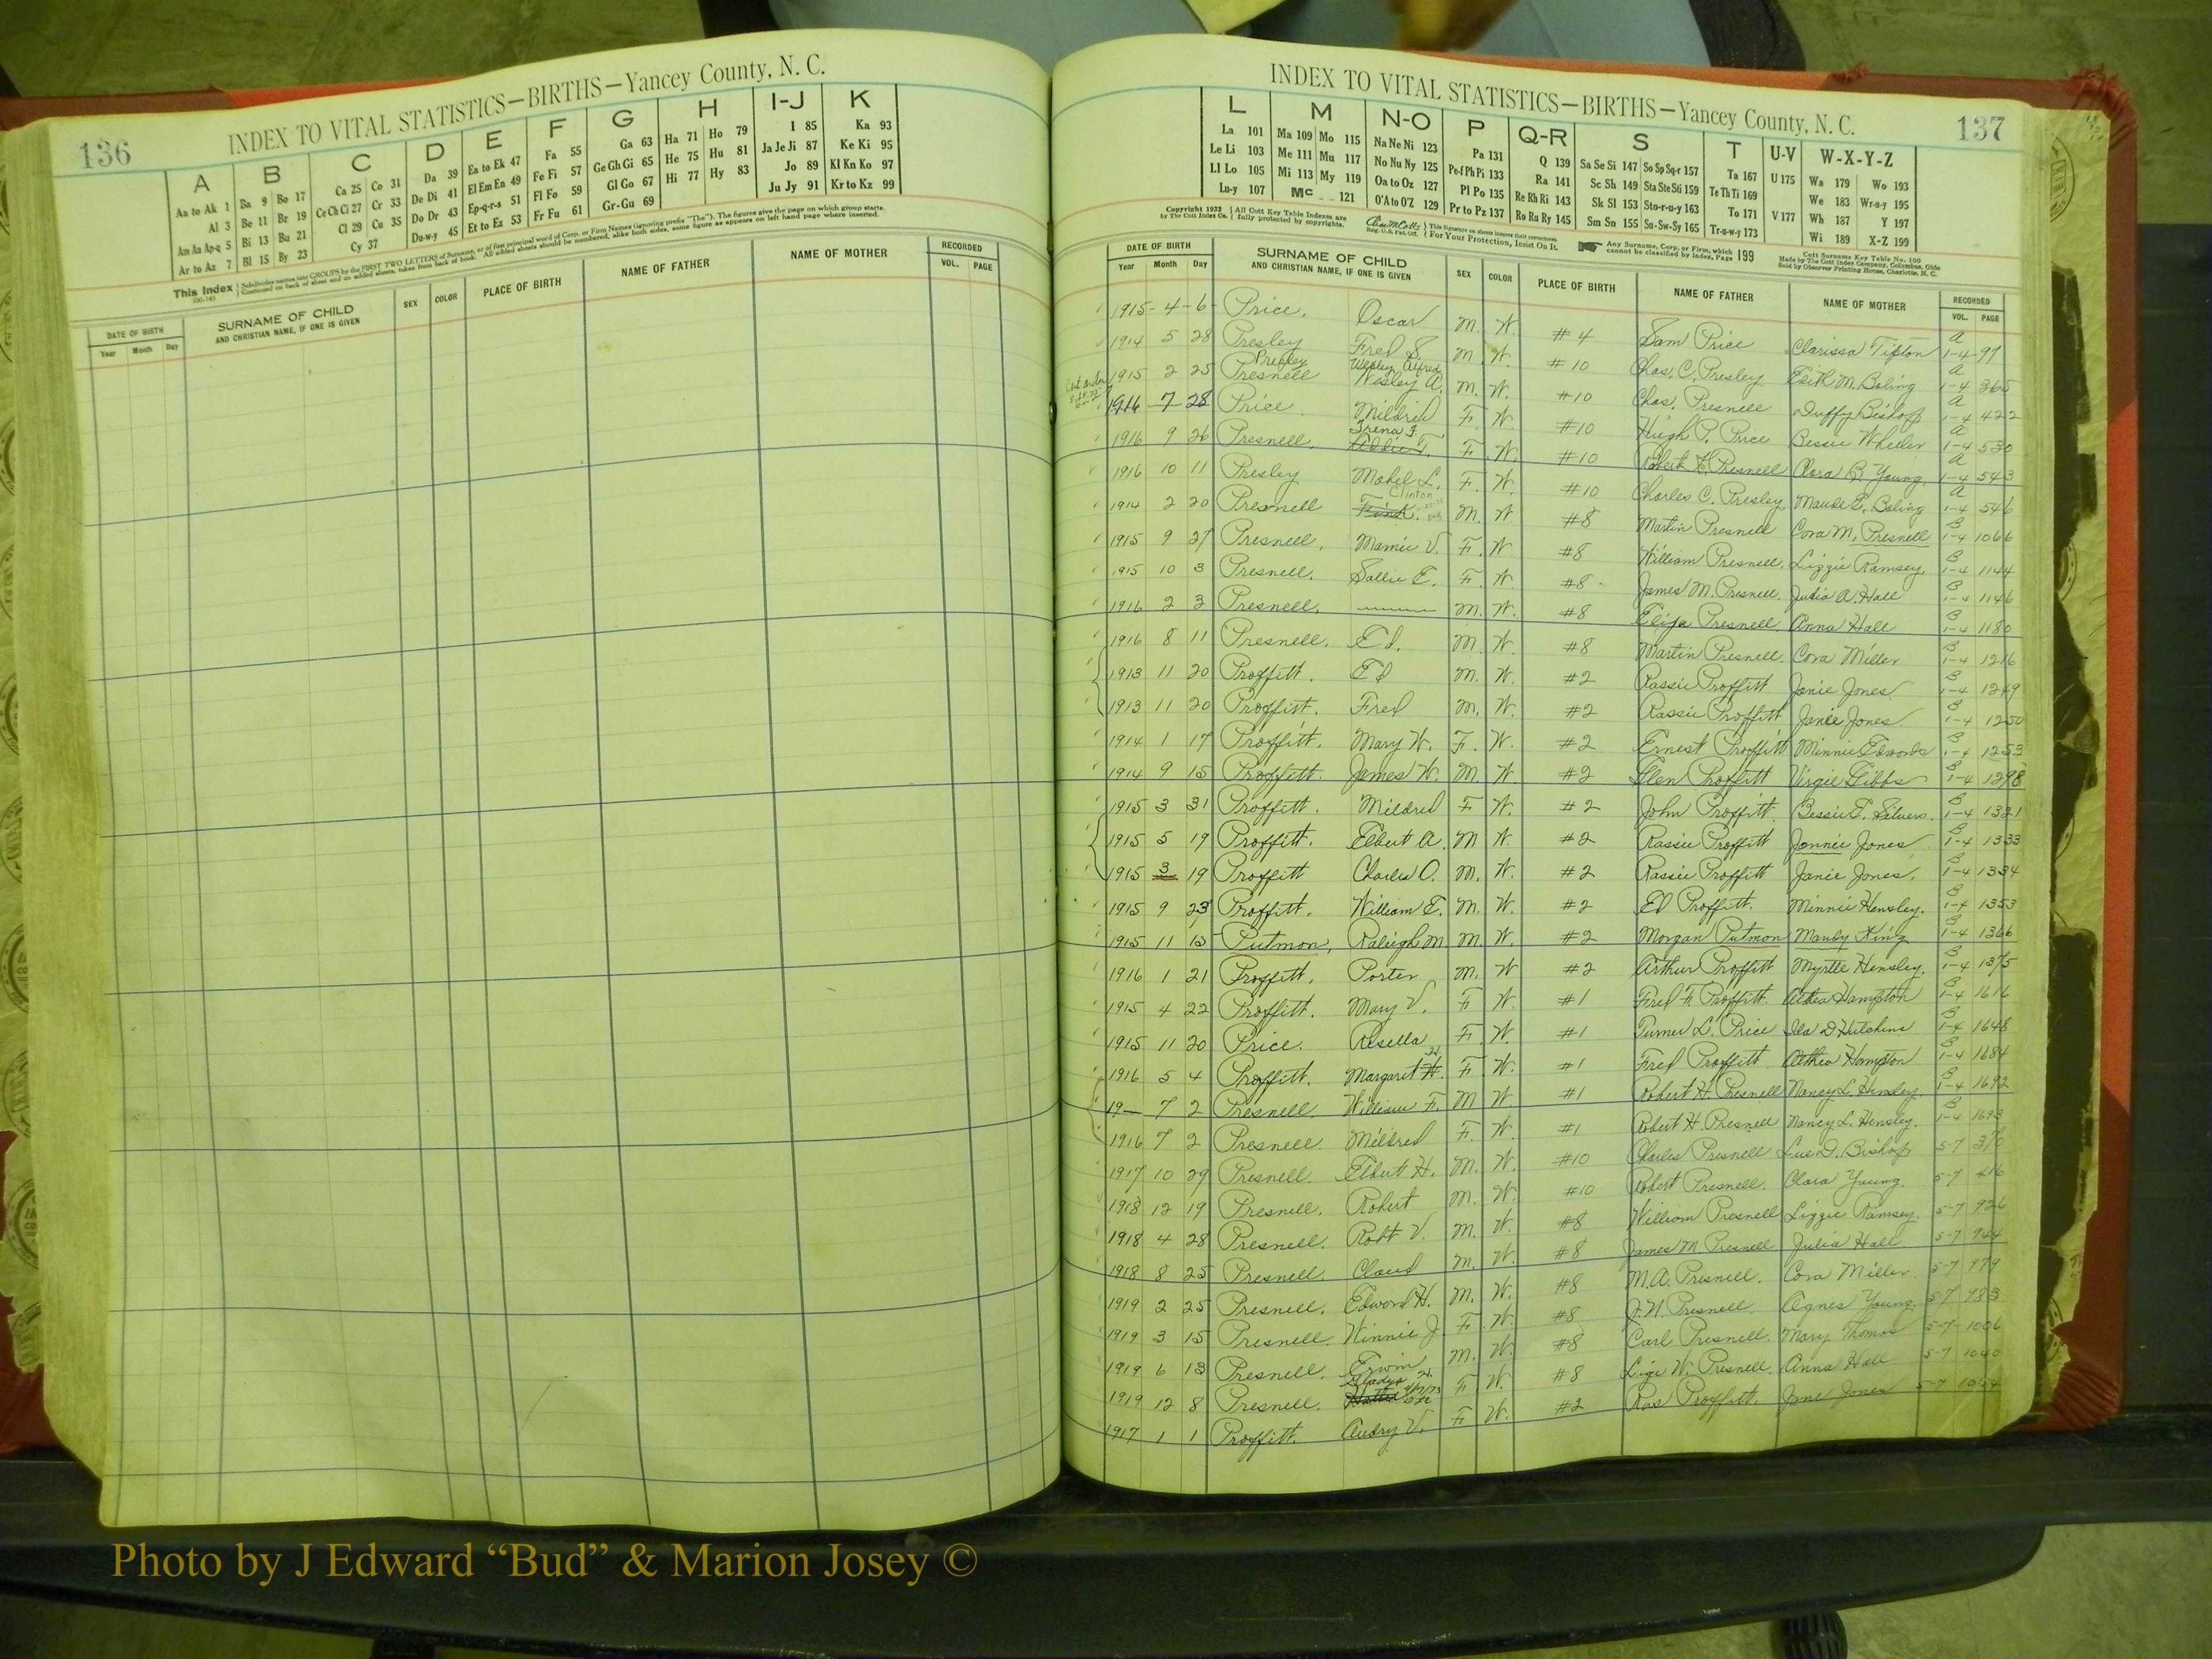 136
INDEX TO VITAL STATISTICS—BIRTHS—Yancey County, N. C.
A B C D E F G H I-J K
Aa to Ak 1 Ba 9 Bo 17 Ca 25 Co 31 Da 39 Ea to Ek 47 Fa 55 Ga 63 Ha 71 Ho 79 I 85 Ka 93
Al 3 Be 11 Br 19 Ce Ch Ci 27 Cr 33 De Di 41 El Em En 49 Fe Fi 57 Ge Gh Gi 65 He 75 Hu 81 Ja Je Ji 87 Ke Ki 95
Am An Ap-q 5 Bi 13 Bu 21 Cl 29 Cu 35 Do Dr 43 Ep-q-r-s 51 Fl Fo 59 Gl Go 67 Hi 77 Hy 83 Jo 89 Kl Kn Ko 97
Ar to Az 7 Bl 15 By 23 Cy 37 Du-w-y 45 Et to Ez 53 Fr Fu 61 Gr-Gu 69 Ju Jy 91 Kr to Kz 99
This Index Subdivides names into GROUPS by the FIRST TWO LETTERS of Surname, or of first principal word of Corp. or Firm Names (ignoring prefix "The"). The figures give the page on which group starts.
Continued on back of sheet and on added sheets, taken from back of book. All added sheets should be numbered, alike both sides, same figure as appears on left hand page where inserted.
DATE OF BIRTH SURNAME OF CHILD SEX COLOR PLACE OF BIRTH NAME OF FATHER NAME OF MOTHER RECORDED
Year Month Day AND CHRISTIAN NAME, IF ONE IS GIVEN VOL. PAGE
INDEX TO VITAL STATISTICS—BIRTHS—Yancey County, N. C.
137
L M N-O P Q-R S T U-V W-X-Y-Z
La 101 Ma 109 Mo 115 Na Ne Ni 123 Pa 131 Q 139 Sa Se Si 147 So Sp Sq-r 157 Ta 167 U 175 Wa 179 Wo 193
Le Li 103 Me 111 Mu 117 No Nu Ny 125 Pe-f Ph Pi 133 Ra 141 Sc Sh 149 Sta Ste Sti 159 Te Th Ti 169 We 183 Wr-u-y 195
Ll Lo 105 Mi 113 My 119 Oa to Oz 127 Pl Po 135 Re Rh Ri 143 Sk Sl 153 Sto-r-u-y 163 To 171 V 177 Wh 187 Y 197
Lu-y 107 Mc 121 O'A to O'Z 129 Pr to Pz 137 Ro Ru Ry 145 Sm Sn 155 Su-Sw-Sy 165 Tr-u-w-y 173 Wi 189 X-Z 199
Copyright 1932 by The Cott Index Co. All Cott Key Table Indexes are fully protected by copyrights. Reg. U.S. Pat. Off. This Signature on sheets insures their correctness. For Your Protection, Insist On It. Any Surname, Corp. or Firm, which cannot be classified by Index, Page 199 Cott Surname Key Table No. 100
Made by The Cott Index Company, Columbus, Ohio
Sold by Observer Printing House, Charlotte, N. C.
DATE OF BIRTH SURNAME OF CHILD SEX COLOR PLACE OF BIRTH NAME OF FATHER NAME OF MOTHER RECORDED
Year Month Day AND CHRISTIAN NAME, IF ONE IS GIVEN VOL. PAGE
1915-4-6 Price, Oscar M. W. #4 Sam Price Clarissa Tipton A 1-4 97
1914 5 28 Presley Fred S. M. W. #10 Chas. C. Presley Edith M. Boling A 1-4 365
Presley Wesley Alfred
1915 2 25 Presnell Wesley A. M. W. #10 Chas. Presnell Duffy Bishop A 1-4 422
1916 7 28 Price Mildred F. W. #10 Hugh P. Price Bessie Wheeler A 1-4 530
Irena F.
1916 9 26 Presnell, Addie F. F. W. #10 Robert H. Presnell Clara B. Young A 1-4 543
1916 10 11 Presley Mabel L. F. W. #10 Charles C. Presley Maude E. Boling A 1-4 546
Clinton
1914 2 20 Presnell M. W #8 Martin Presnell Cora M. Presnell B 1-4 1066
1915 9 27 Presnell, Mamie V. F. W. #8 William Presnell, Lizzie Ramsey B 1-4 1144
1915 10 3 Presnell. Sallie E. F. W. #8 James M. Presnell. Julia A. Hall B 1-4 1146
1916 2 3 Presnell. M. W. #8 Elija Presnell. Anna Hall B 1-4 1180
1916 8 11 Presnell. Ed. M. W. #8 Martin Presnell. Cora Miller B 1-4 1216
1913 11 20 Proffitt. Ed M. W. #2 Rassie Proffitt Janie Jones B 1-4 1249
1913 11 20 Proffitt. Fred M. W. #2 Rassie Proffitt Janie Jones B 1-4 1250
1914 1 17 Proffitt. Mary W. F. W. #2 Ernest Proffitt Minnie Edwards B 1-4 1253
1914 9 15 Proffitt. James W. M W #2 Glen Proffitt Virgie Gibbs B 1-4 1298
1915 3 31 Proffitt. Mildred F W. #2 John Proffitt. Bessie E. Silvers. B 1-4 1321
1915 5 19 Proffitt. Elbert A. M W. #2 Rassie Proffitt Jannie Jones B 1-4 1333
1915 3 19 Proffitt Charles O. M. W. #2 Rassie Proffitt Janie Jones. B 1-4 1334
1915 9 23 Proffitt. William E. M. W. #2 Ed Proffitt. Minnie Hensley. B 1-4 1353
1915 11 15 Putmon, Raleigh M M. W. #2 Morgan Putmon Mauby King B 1-4 1366
1916 1 21 Proffitt. Porter M. W #2 Arthur Proffitt Myrtle Hensley. B 1-4 1375
1915 4 22 Proffitt. Mary V. F W. #1 Fred F. Proffitt. Althea Hampton B 1-4 1616
1915 11 20 Price. Rosella F. W. #1 Turner L. Price Ida D Hutchins B 1-4 1648
1916 5 4 Proffitt. Margaret H. F W. #1 Fred Proffitt Althea Hampton B 1-4 1684
19— 7 2 Presnell William F. M W #1 Robert H. Presnell Nancy L. Hensley. B 1-4 1692
1916 7 2 Presnell. Mildred F. W. #1 Robert H. Presnell Nancy L. Hensley. B 1-4 1693
1917 10 29 Presnell. Elbert H. M. W. #10 Charles Presnell Lue D. Bishop 5-7 370
1918 12 19 Presnell. Robert M. W. #10 Robert Presnell. Clara Young. 5-7 416
1918 4 28 Presnell. Robt V. M. W. #8 William Presnell Lizzie Ramsey. 5-7 926
1918 8 25 Presnell. Claud M. W. #8 James M Presnell Julia Hall 5-7 944
1919 2 25 Presnell. Edword H. M. W. #8 M.A. Presnell. Cora Miller 5-7 979
1919 3 15 Presnell. Winnie J. F. W. #8 J.N. Presnell. Agnes Young. 5-7 983
1919 6 13 Presnell. Erwin M. W. #8 Carl Presnell. Mary Thomas 5-7 1006
Gladys
1919 12 8 Presnell. Hattie F W. #8 Ligi W. Presnell Anna Hall 5-7 1040
1917 1 1 Proffitt. Audry V. F W. #2 Ras Proffitt. Jane Jones 5-7
Photo by J Edward “Bud” & Marion Josey ©